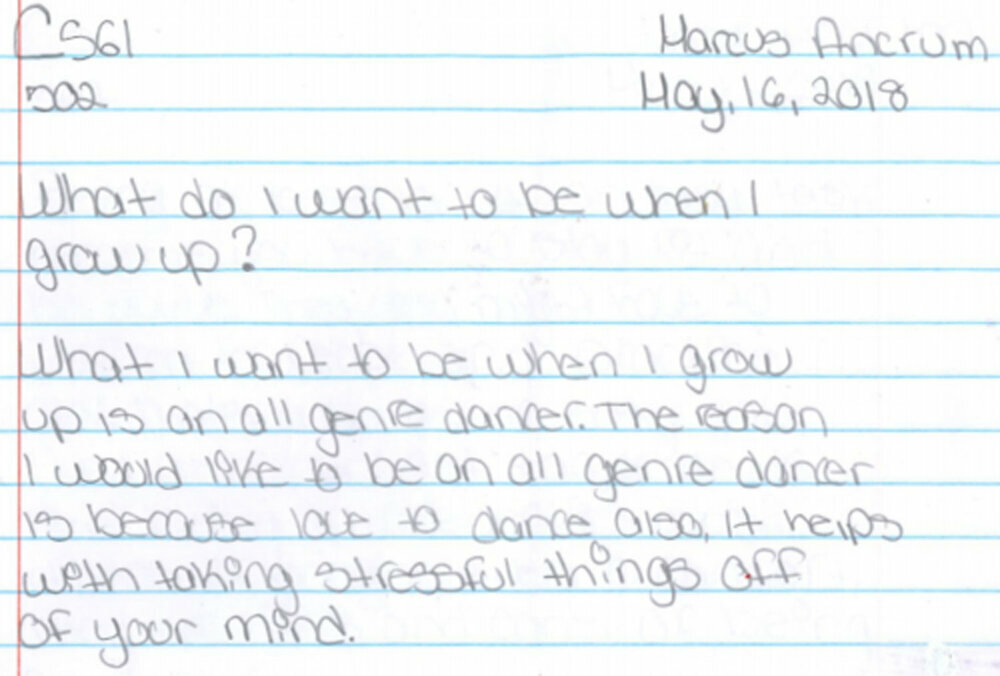 CS61 Marcus Ancrum
502 May, 16, 2018
What do I want to be when I
grow up?
What I want to be when I grow
up is an all genre dancer. The reason
I would like to be an all genre dancer
is because love to dance also, it helps
with taking stressful things off
of your mind.